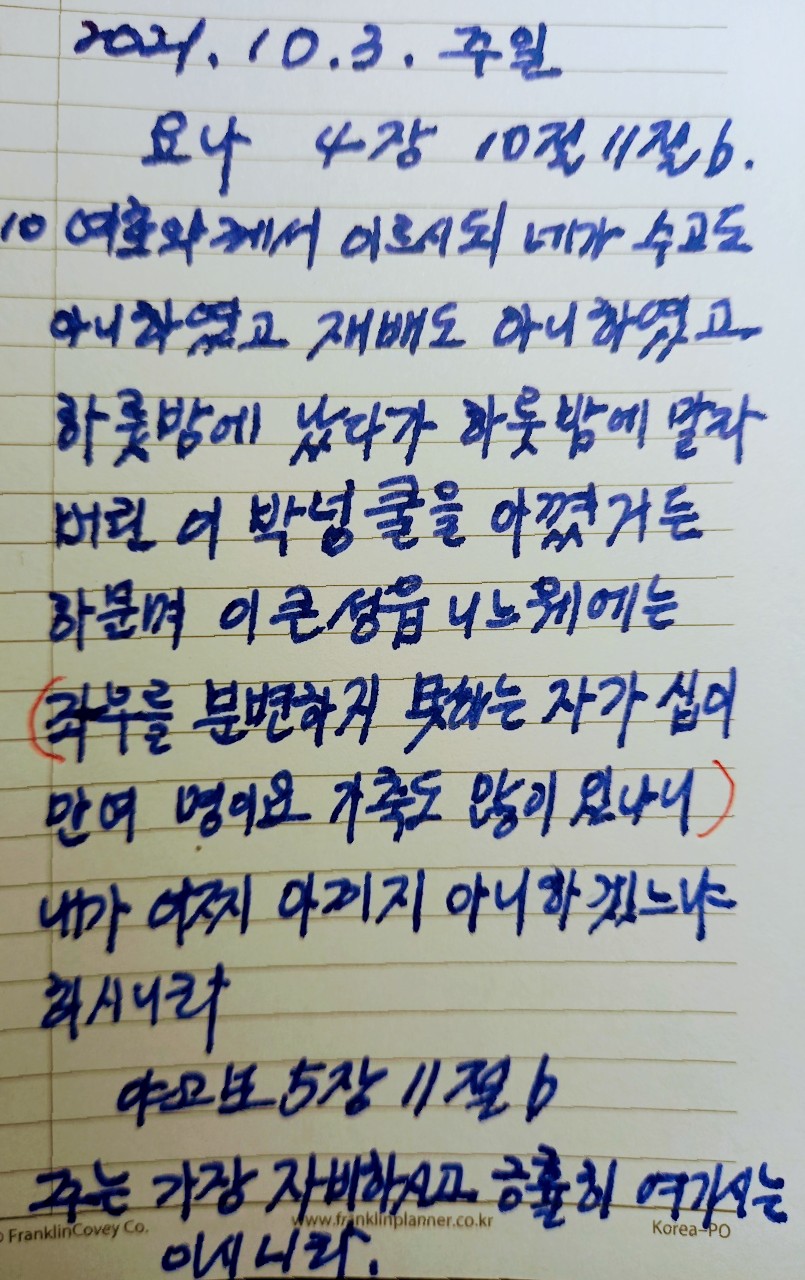 2021. 10. 3. 주일
요나 4장 10절 11절 b.
10 여호와께서 이르시되 네가 수고도
아니하였고 재배도 아니하였고
하룻밤에 났다가 하룻밤에 말라
버린 이 박넝쿨을 아꼈거든
하물며 이 큰 성읍 니느웨에는
(좌우를 분변하지 못하는 자가 십이
만여 명이요 가축도 많이 있나니)
내가 어찌 아끼지 아니하겠느냐
하시니라
야고보 5장 11절 b
주는 가장 자비하시고 긍휼히 여기시는
이시니라.
FranklinCovey Co. www.franklinplanner.co.kr Korea-PO